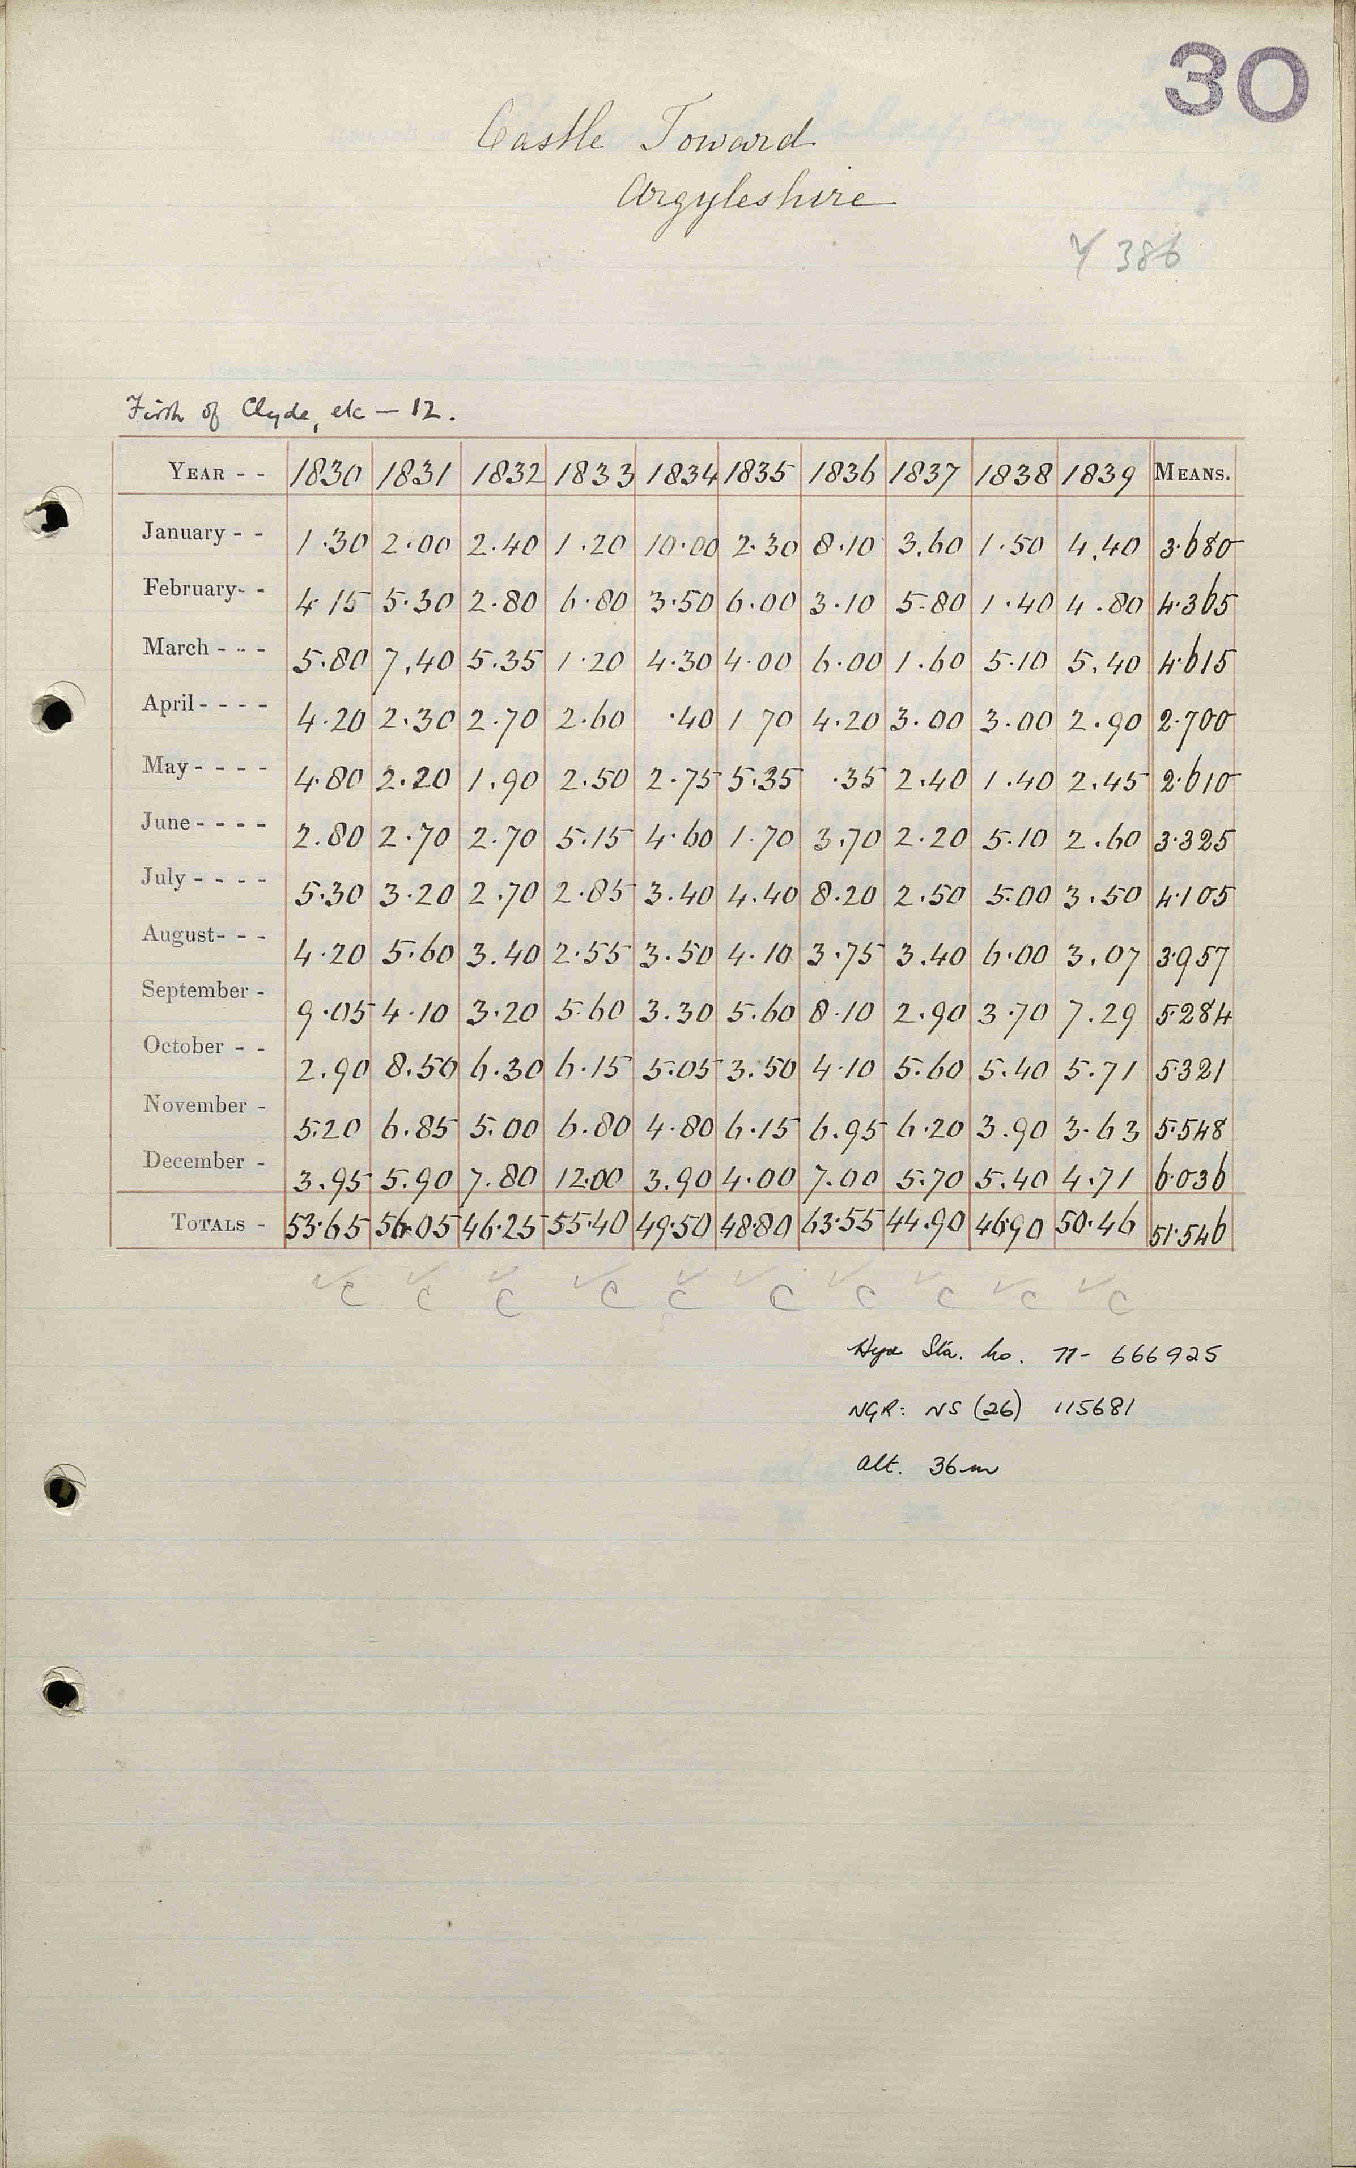 30
Castle Toward
Argyleshire
Y 386
Firth of Clyde, etc — 12.
YEAR - - 1830 1831 1832 1833 1834 1835 1836 1837 1838 1839 MEANS.
January - - 1.30 2.00 2.40 1.20 10.00 2.30 8.10 3.60 1.50 4.40 3.680
February- - 4.15 5.30 2.80 6.80 3.50 6.00 3.10 5.80 1.40 4.80 4.365
March - - - 5.80 7.40 5.35 1.20 4.30 4.00 6.00 1.60 5.10 5.40 4.615
April - - - - 4.20 2.30 2.70 2.60 .40 1 70 4.20 3.00 3.00 2.90 2.700
May - - - - 4.80 2.20 1.90 2.50 2.75 5.35 .35 2.40 1.40 2.45 2.610
June - - - - 2.80 2.70 2.70 5.15 4.60 1.70 3.70 2.20 5.10 2.60 3.325
July - - - - 5.30 3.20 2.70 2.85 3.40 4.40 8.20 2.50 5.00 3.50 4.105
August- - - 4.20 5.60 3.40 2.55 3.50 4.10 3.75 3.40 6.00 3.07 3.957
September - 9.05 4.10 3.20 5.60 3.30 5.60 8.10 2.90 3.70 7.29 5.284
October - - 2.90 8.50 6.30 6.15 5.05 3.50 4.10 5.60 5.40 5.71 5.321
November - 5.20 6.85 5.00 6.80 4.80 6.15 6.95 6.20 3.90 3.63 5.548
December - 3.95 5.90 7.80 12.00 3.90 4.00 7.00 5.70 5.40 4.71 6.036
TOTALS - 53.65 56.05 46.25 55.40 49.50 48.80 63.55 44.90 46.90 50.46 51.546
✓C ✓C ✓C ✓C ✓C ✓C ✓C ✓C ✓C ✓C
Sta. No. 77- 666925
NGR: NS (26) 115681
Alt. 36m